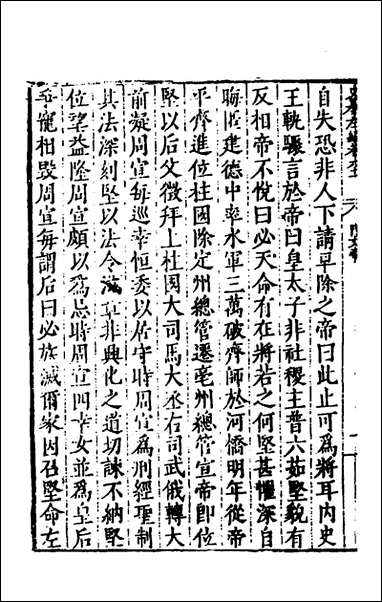 自失恐非人下請早除之帝曰此止可爲將耳内史
王軌驟言於帝曰皇太子非社稷主普六茹堅貌有
反相帝不悅曰必天命有在將若之何堅甚懼深自
晦匿建德中率水軍三萬破齊師於河橋明年從帝
平齊進位柱國除定州總管遷亳州總管宣帝即位
堅以后父徵拜上柱国大司馬大丞右司武俄轉大
前疑周宣每巡幸恒委以居守時周宣爲刑經聖制
其法深刻堅以法令滋章非興化之道切諫不納堅
位望益隆周宣頗以爲忌時周宣四幸女並爲皇后
爭寵相毁周宣每謂后曰必族滅爾家因召堅命左